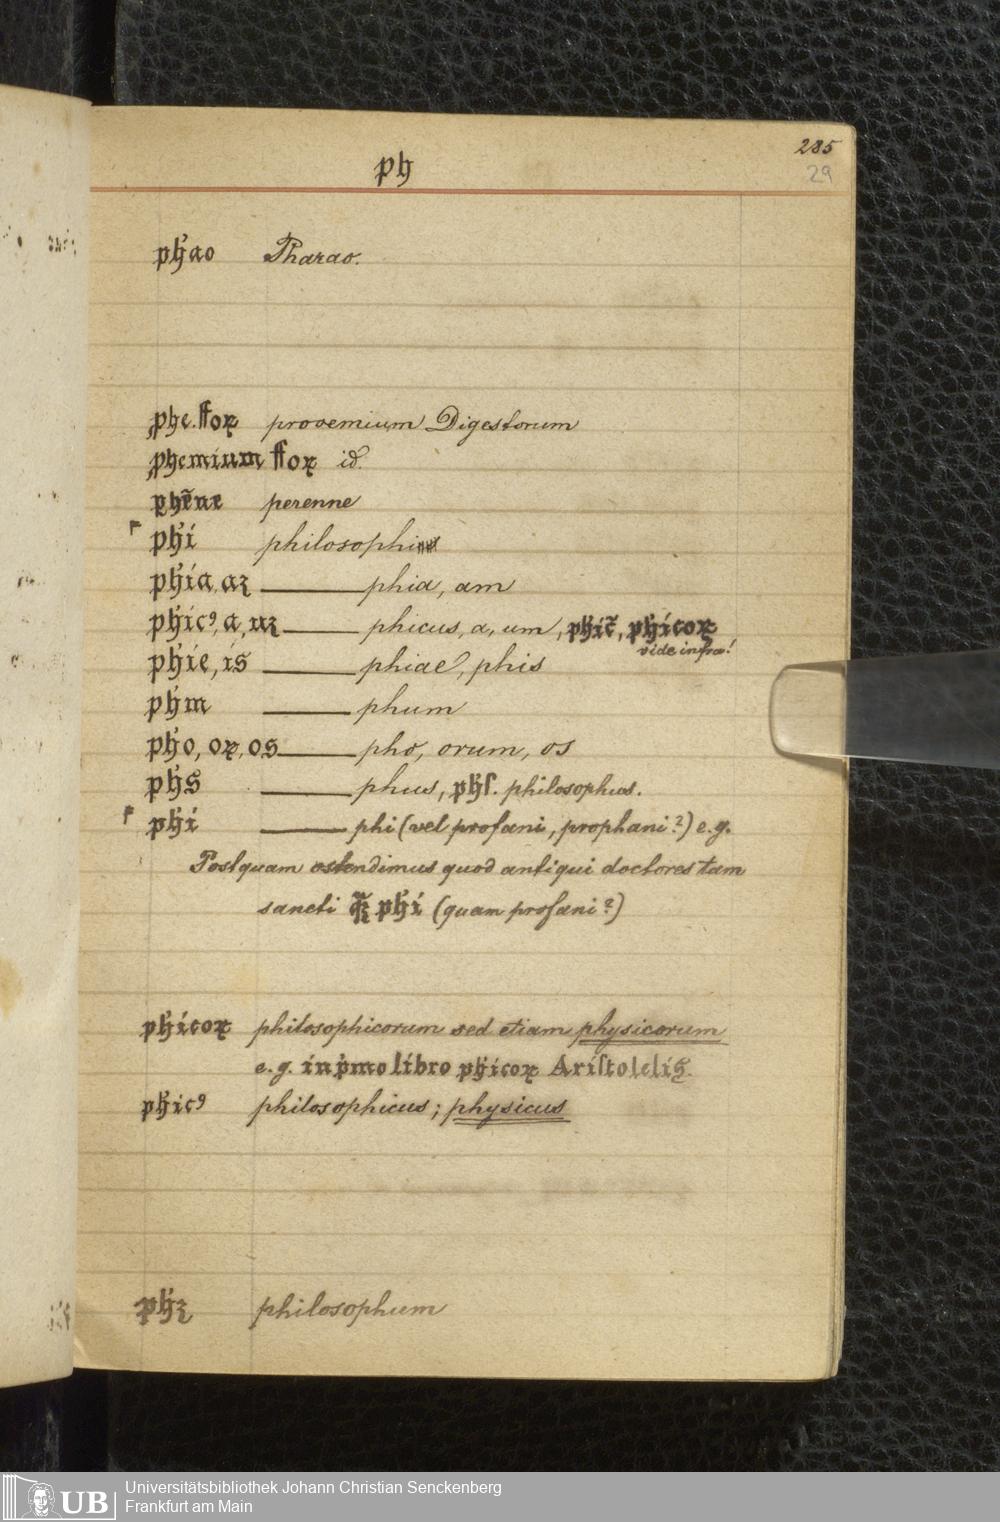 ph
285
29
phao Pharao.
phe. ffoꝝ prooemium Digestorum
phemium ffoꝝ id.
phēne perenne
phi philosophi
phia, aꝫ ——— phia, am
phicꝰ, a, uꝫ ——— phicus, a, um, phic̃, phicoꝝ
vide infra!
phie, is ——— phiae, phis
phm ——— phum
pho, oꝝ, os ——— pho, orum, os
phs ——— phus, phſ. philosophus.
phi ——— phi (vel profani, prophani?) e.g.
Postquam ostendimus quod antiqui doctores tam
sancti phi (quam profani?)
phicoꝝ philosophicorum sed etiam physicorum
e.g. in pmo libro phicoꝝ Ariſtotelis.
phicꝰ philosophicus; physicus
phꝫ philosophum
UB
Universitätsbibliothek Johann Christian Senckenberg
Frankfurt am Main